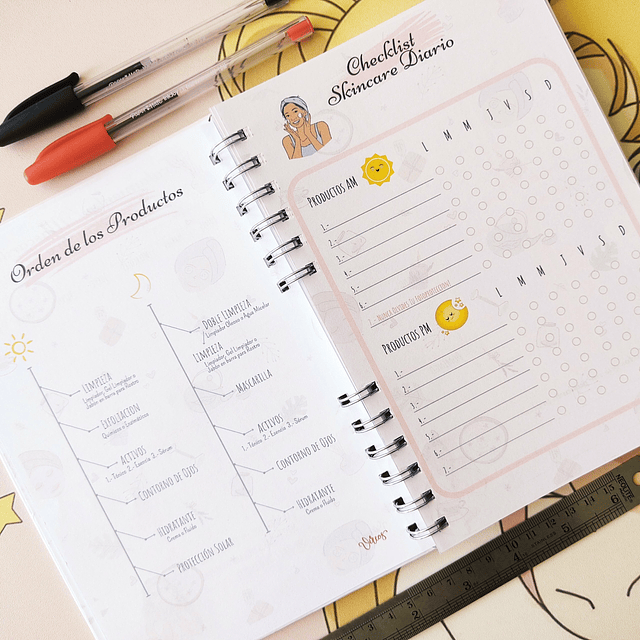 Orden de los Productos
LIMPIEZA
Limpiador, Gel Limpiador o
Jabón en barra para Rostro
EXFOLIACION
Química o Enzimática
ACTIVOS
1.-Tónico 2.- Esencia 3.-Sérum
CONTORNO DE OJOS
HIDRATANTE
Crema o Fluido
PROTECCIÓN SOLAR
DOBLE LIMPIEZA
Limpiador Oleoso o Agua Micelar
LIMPIEZA
Limpiador, Gel Limpiador o
Jabón en barra para Rostro
MASCARILLA
ACTIVOS
1.-Tónico 2.- Esencia 3.-Sérum
CONTORNO DE OJOS
HIDRATANTE
Crema o Fluido
Checklist
Skincare Diario
PRODUCTOS AM
L M M J V S D
1.-
2.-
3.-
4.-
5.-
6.-
7.- NUNCA OLVIDES LA FOTOPROTECCION!
PRODUCTOS PM
L M M J V S D
1.-
2.-
3.-
4.-
5.-
6.-
7.-